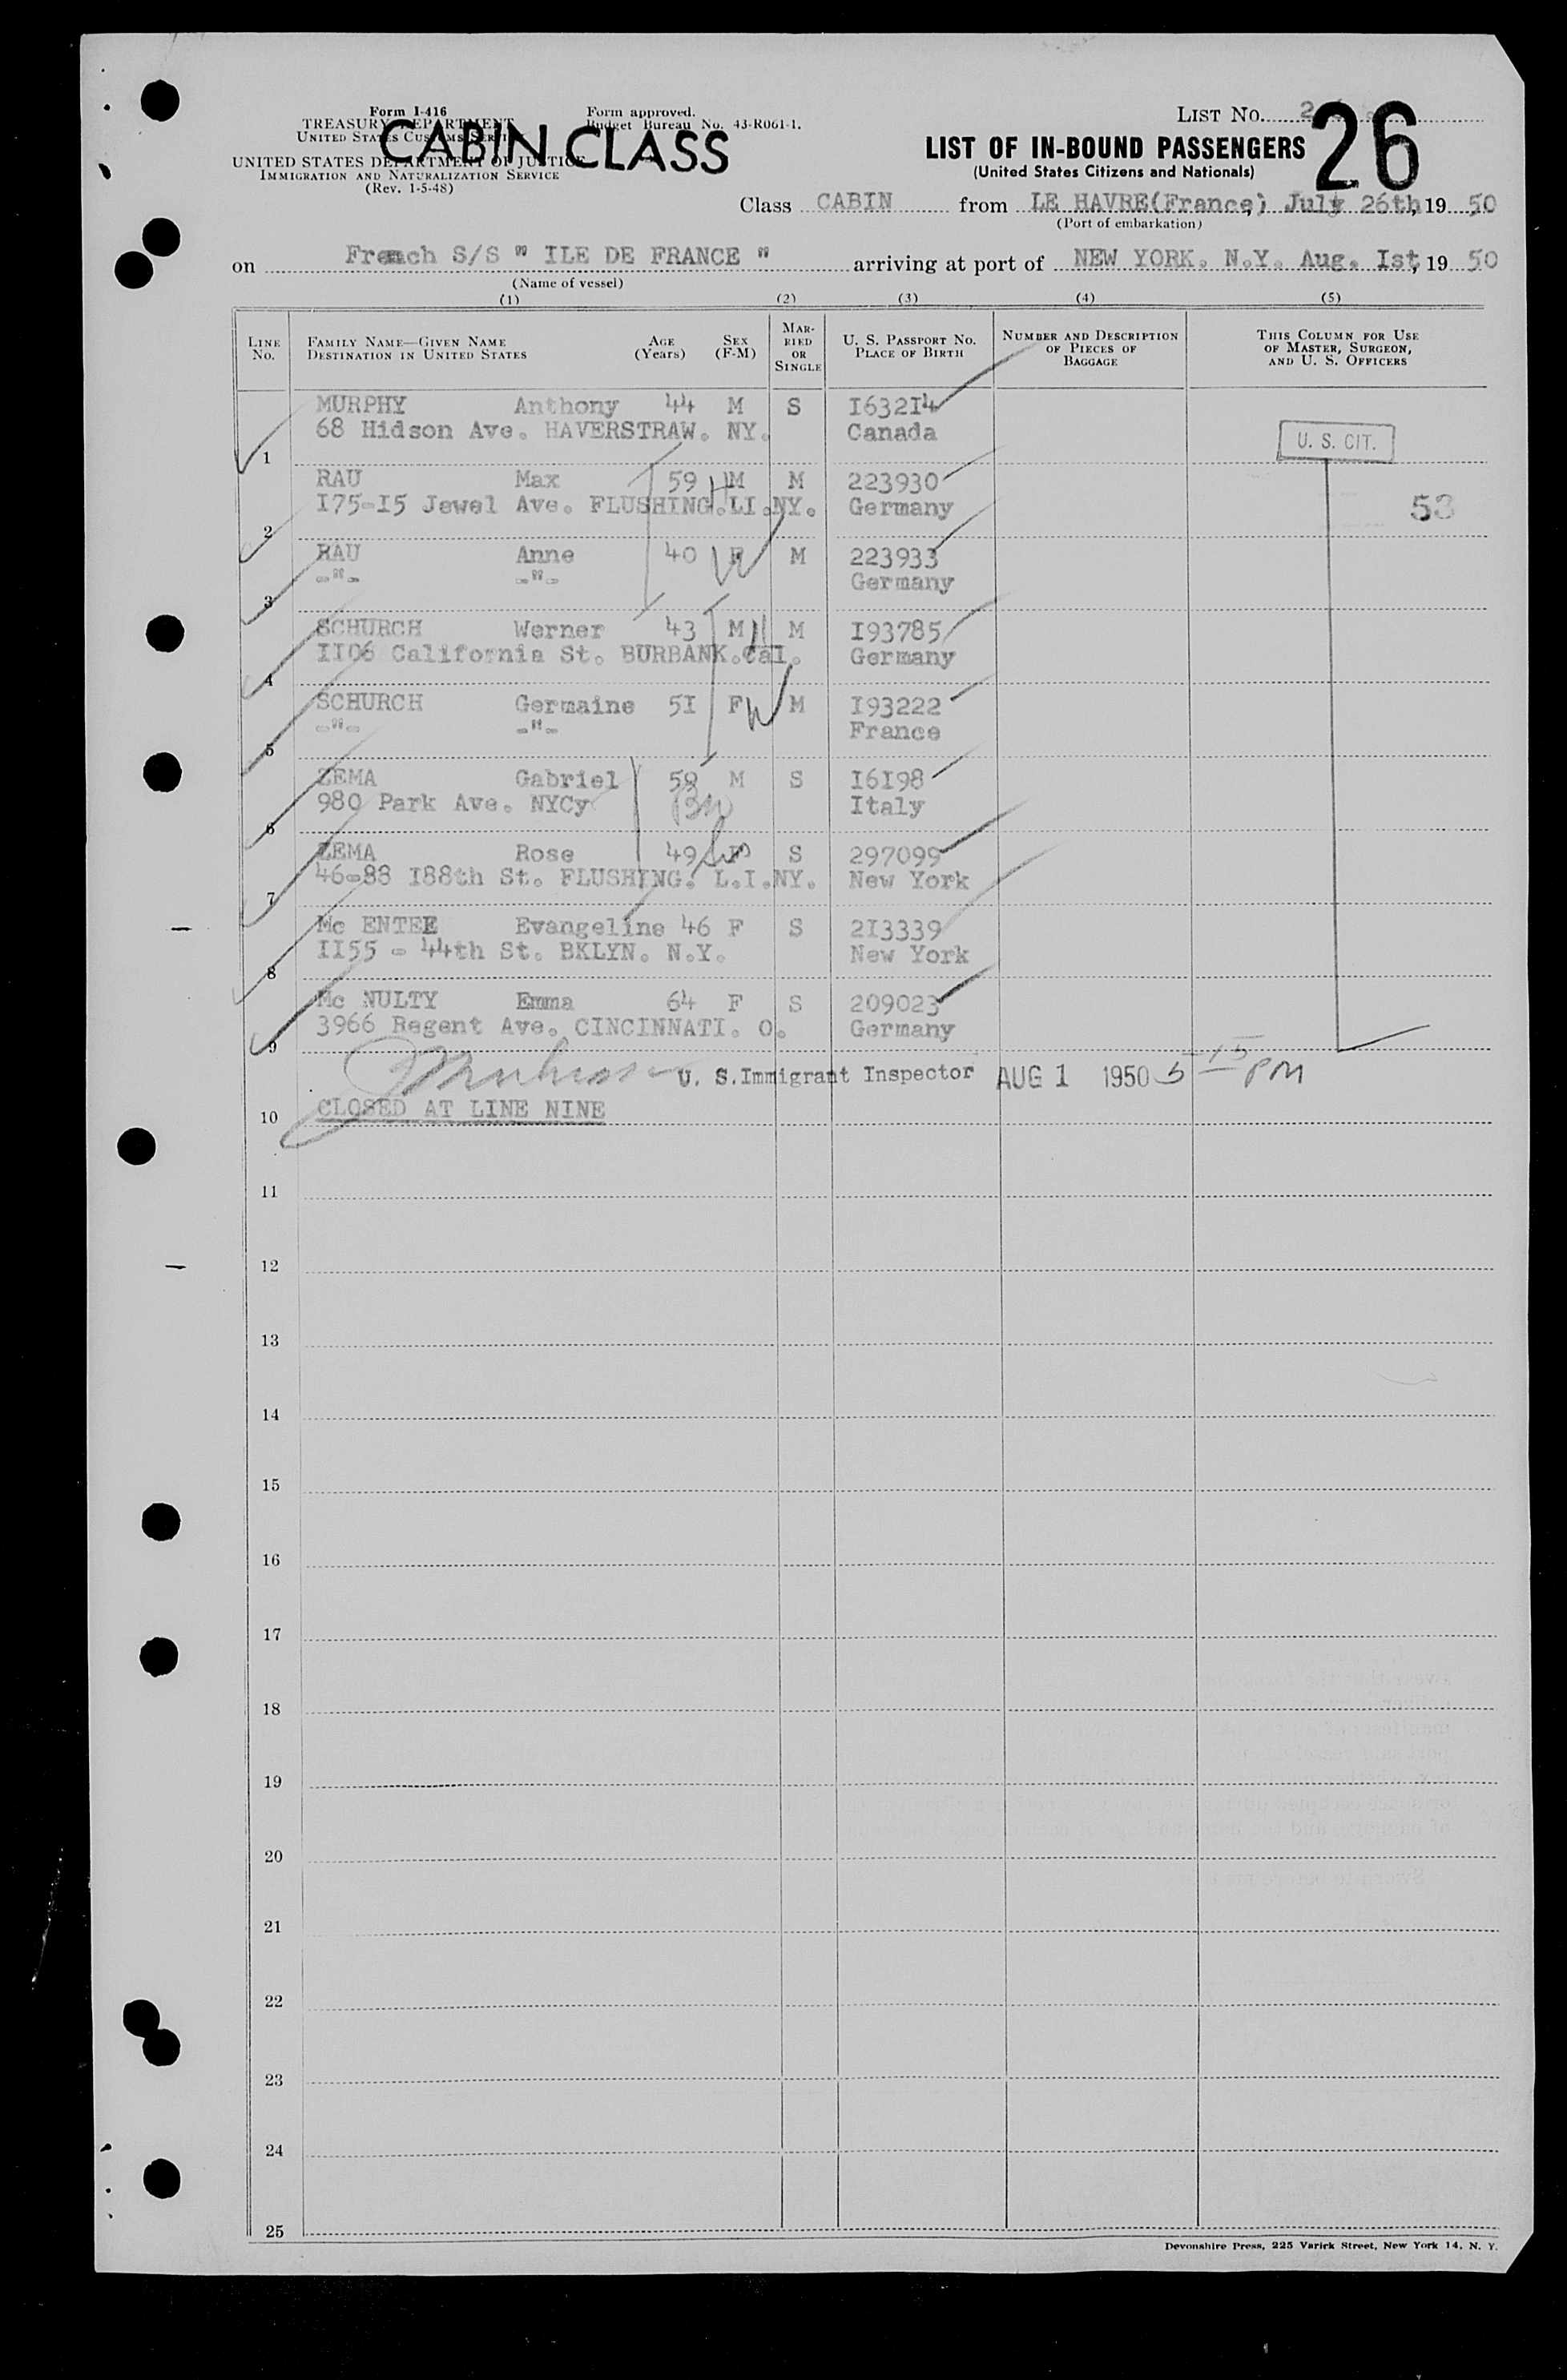 Form I-416
TREASURY DEPARTMENT
UNITED STATES CUSTOMS SERVICE
UNITED STATES DEPARTMENT OF JUSTICE
IMMIGRATION AND NATURALIZATION SERVICE
(Rev. 1-5-48)
Form approved.
Budget Bureau No. 43-R061-1.
CABIN CLASS
LIST NO.
26
LIST OF IN-BOUND PASSENGERS
(United States Citizens and Nationals)
Class CABIN from LE HAVRE(France) July 26th, 19 50
(Port of embarkation)
on French S/S " ILE DE FRANCE " arriving at port of NEW YORK. N.Y. Aug. Ist, 19 50
(Name of vessel)
(1) (2) (3) (4) (5)
LINE No. FAMILY NAME—GIVEN NAME DESTINATION IN UNITED STATES AGE (Years) SEX (F-M) MARRIED OR SINGLE U. S. PASSPORT NO. PLACE OF BIRTH NUMBER AND DESCRIPTION OF PIECES OF BAGGAGE THIS COLUMN FOR USE OF MASTER, SURGEON, AND U. S. OFFICERS
MURPHY Anthony 44 M S I632I4
68 Hidson Ave. HAVERSTRAW. NY. Canada
U. S. CIT.
1
RAU Max 59 M M 223930
H
I75-I5 Jewel Ave. FLUSHING.LI.NY. Germany
53
2
RAU Anne 40 F M 223933
W
-"- -"- Germany
3
SCHURCH Werner 43 M M I93785
H
II06 California St. BURBANK.Cal. Germany
4
SCHURCH Germaine 5I F M I93222
W
-"- -"- France
5
ZEMA Gabriel 59 M S I6I98
980 Park Ave. NYCy Italy
Bro
6
ZEMA Rose 49 F S 297099
46-88 I88th St. FLUSHING. L.I.NY. New York
7
Mc ENTEE Evangeline 46 F S 2I3339
II55 - 44th St. BKLYN. N.Y. New York
8
Mc NULTY Emma 64 F S 209023
3966 Regent Ave. CINCINNATI. O. Germany
9
U. S. Immigrant Inspector AUG 1 1950 5-15 PM
10 CLOSED AT LINE NINE
11
12
13
14
15
16
17
18
19
20
21
22
23
24
25
Devonshire Press, 225 Varick Street, New York 14, N. Y.